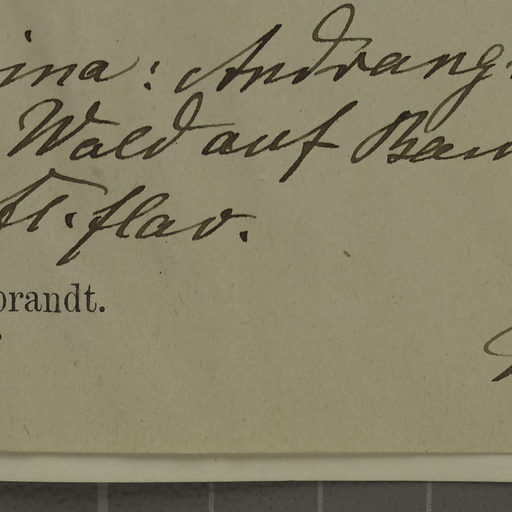 ina: Andrang
Wald auf Bau
fl. flav.
brandt.